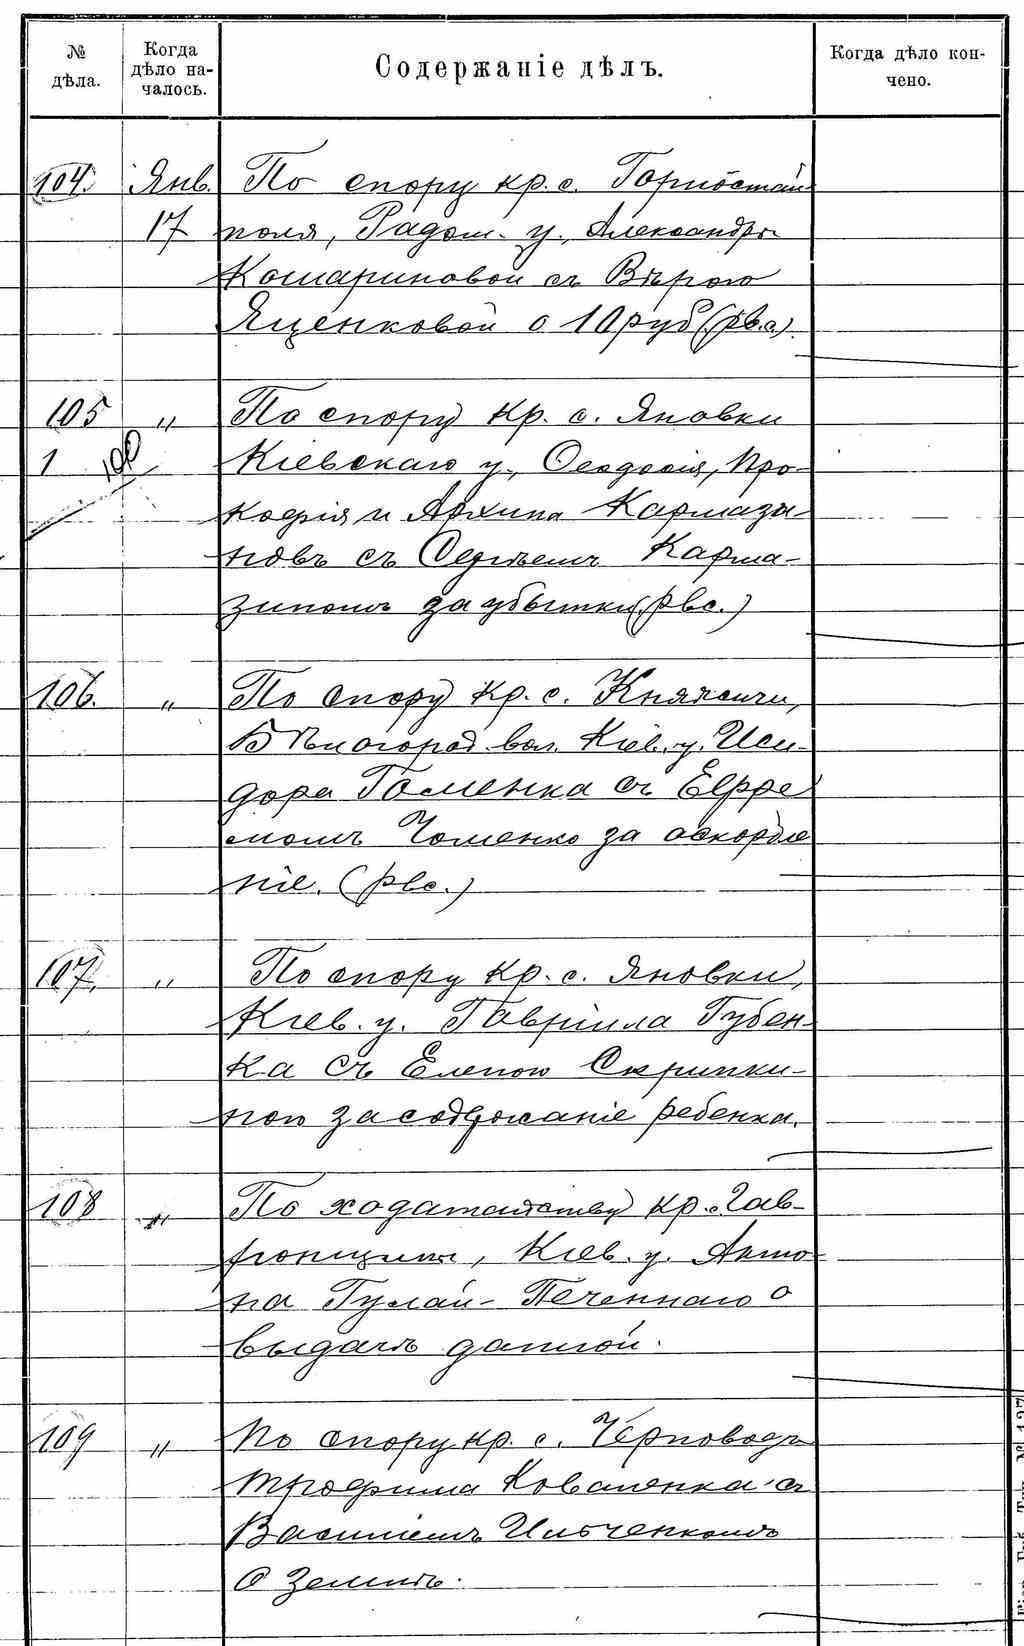 № дѣла. Когда дѣло на- чалось. Содержаніе дѣлъ. Когда дѣло кон- чено.
104. Янв. По спору кр. с. Горностай-
17 поля, Радом. у., Александры
Комариновой съ Вѣрою
Яценковой о 10 руб (рвс.).
105 " По спору кр. с. Яновки
1 100 Кіевскаго у., Ѳеодосія, Про-
кофія и Архипа Кармази-
новъ съ Сергѣемъ Карма-
зиномъ за убытки (рвс.)
106. " По спору кр. с. Княжичи,
Бѣлогород. вол. Кіев. у. Иси-
дора Гоменка съ Ефре
момъ Гоменко за оскорбле
ніе. (рвс.)
107. " По спору кр. с. Яновки,
Кіев. у. Гавріила Губен-
ка съ Еленою Скрипки-
ной за содержаніе ребенка.
108 " По ходатайству кр. Гав-
ронщины, Кіев. у. Анто-
на Гулай-Печеннаго о
выдачѣ данной.
109 " По спору кр. с. Черноводъ
Трофима Коваленка съ
Василіемъ Ильченкомъ
о землѣ.